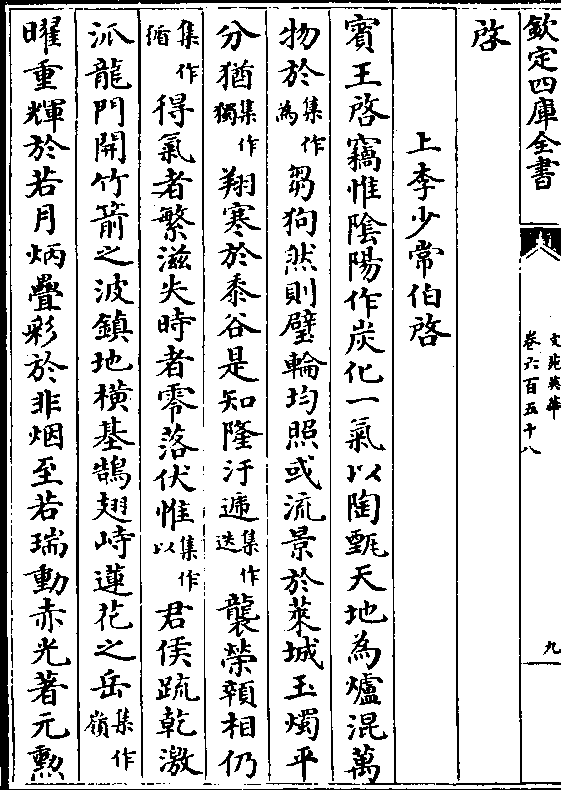 欽定四庫全書
文苑英華
卷六百五十八
九
啓
上李少常伯啓
賓王啓竊惟陰陽作炭化一氣以陶甄天地為爐混萬
物於集作為芻狗然則璧輪均照或流景於萊城玉燭平
分猶集作獨翔寒於黍谷是知隆汙遞集作迭襲榮頛相仍
集作循得氣者繁滋失時者零落伏惟集作以君侯疏乾激
派龍門開竹箭之波鎮地横基鵠翅峙蓮花之岳集作嶺
曜重輝於若月炳疊彩於非烟至若瑞動赤光著元勲